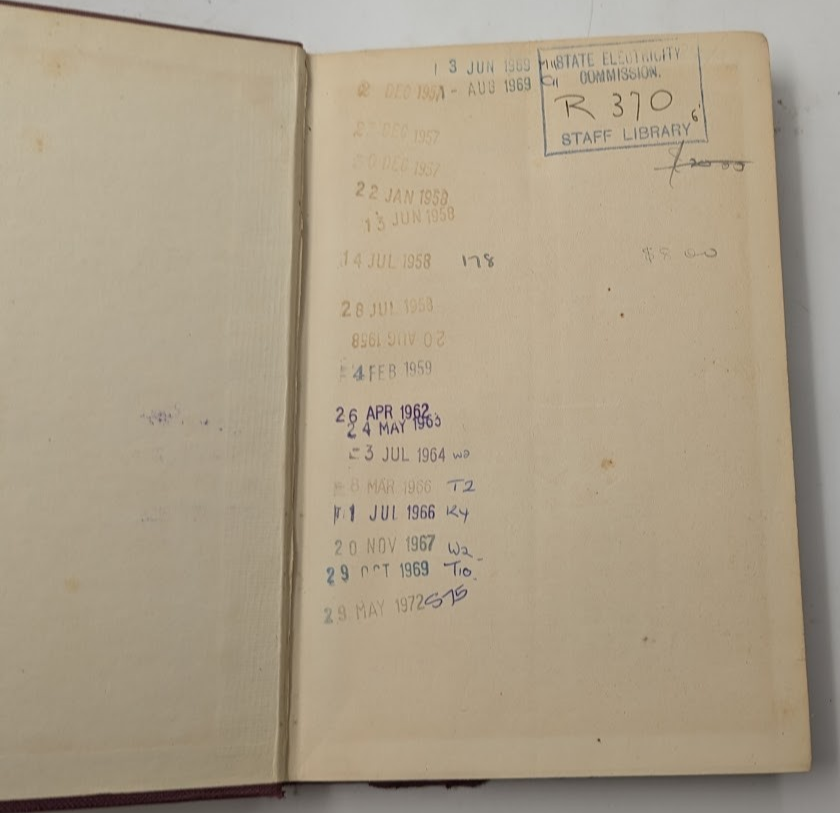 13 JUN 1969 Mu
1 - AUG 1969 C11
STATE ELECTRICITY
COMMISSION.
R 370
STAFF LIBRARY
6
2 DEC 1957
27 DEC 1957
30 DEC 1957
22 JAN 1958
13 JUN 1958
14 JUL 1958 178
28 JUL 1958
20 AUG 1958
4 FEB 1959
26 APR 1962
24 MAY 1963
3 JUL 1964 W2
8 MAR 1966 T2
1 JUL 1966 K4
20 NOV 1967 W2
29 OCT 1969 T10
29 MAY 1972 S75